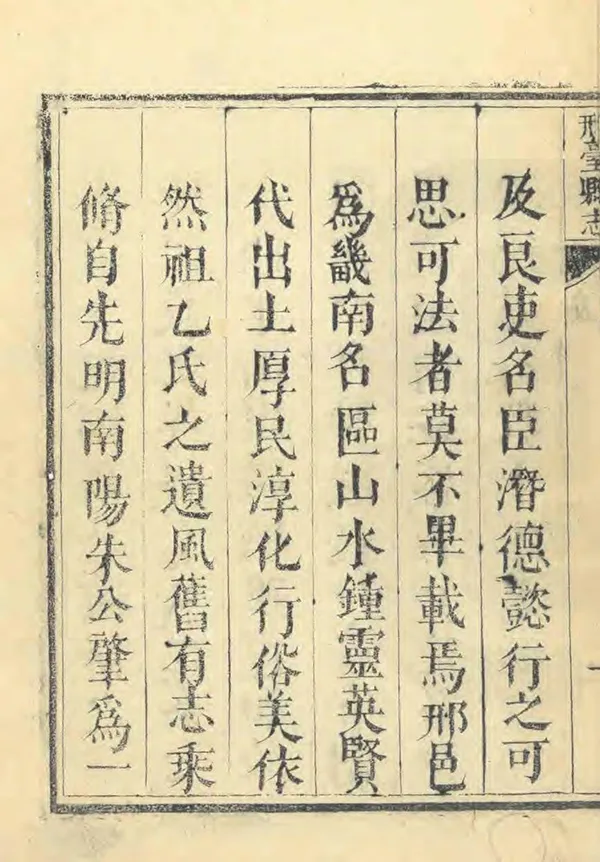 邢臺縣志
及良吏名臣潛德懿行之可
思可法者莫不畢載焉邢邑
爲畿南名區山水鍾靈英賢
代出土厚民淳化行俗美依
然祖乙氏之遺風舊有志乘
脩自先明南陽朱公肇爲一